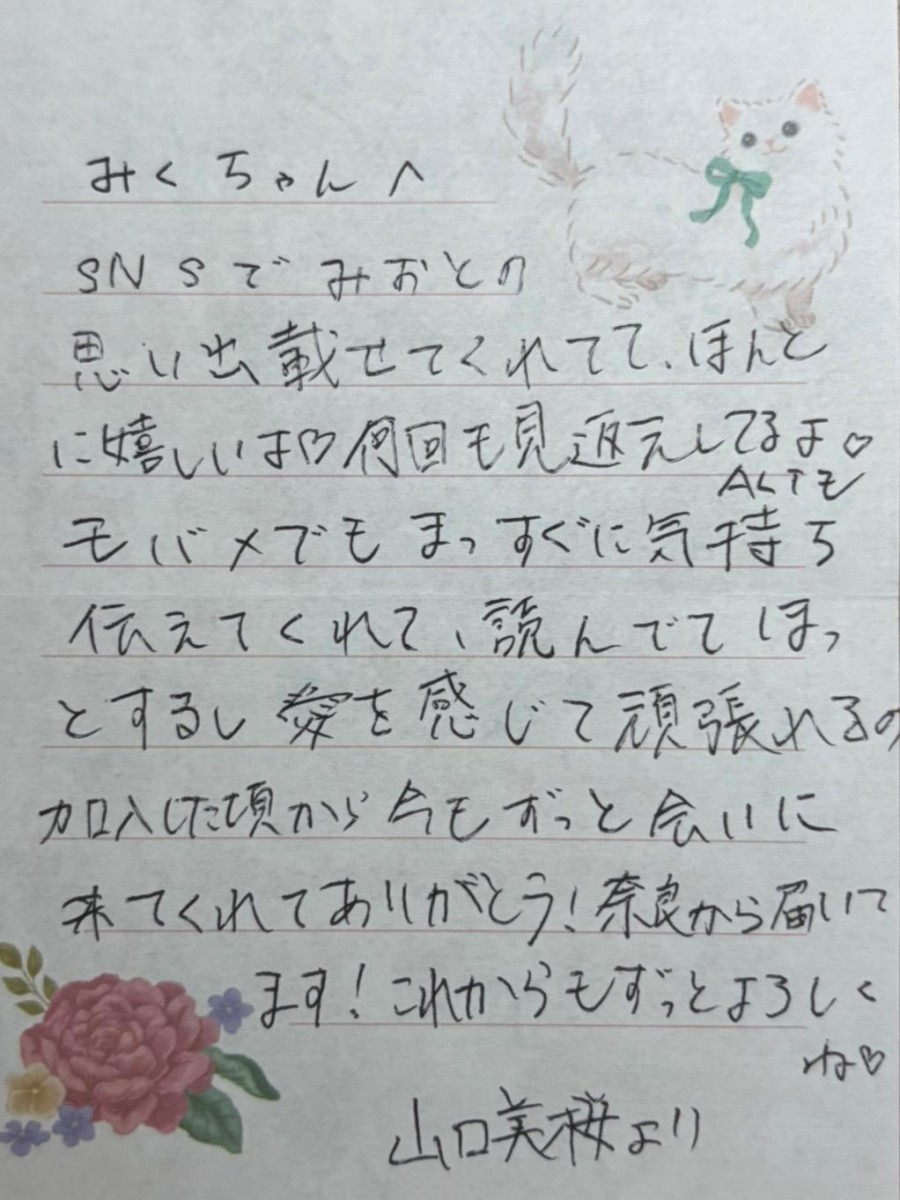 みくちゃんへ
SNSでみおとの
思い出載せてくれてて、ほんと
に嬉しいよ♡何回も見返えしてるよ♡
ALTも
モバメでもまっすぐに気持ち
伝えてくれて、読んでてほっ
とするし愛を感じて頑張れるの
加入した頃から今もずっと会いに
来てくれてありがとう!奈良から届いて
ます!これからもずっとよろしく
ね♡
山口美桜より